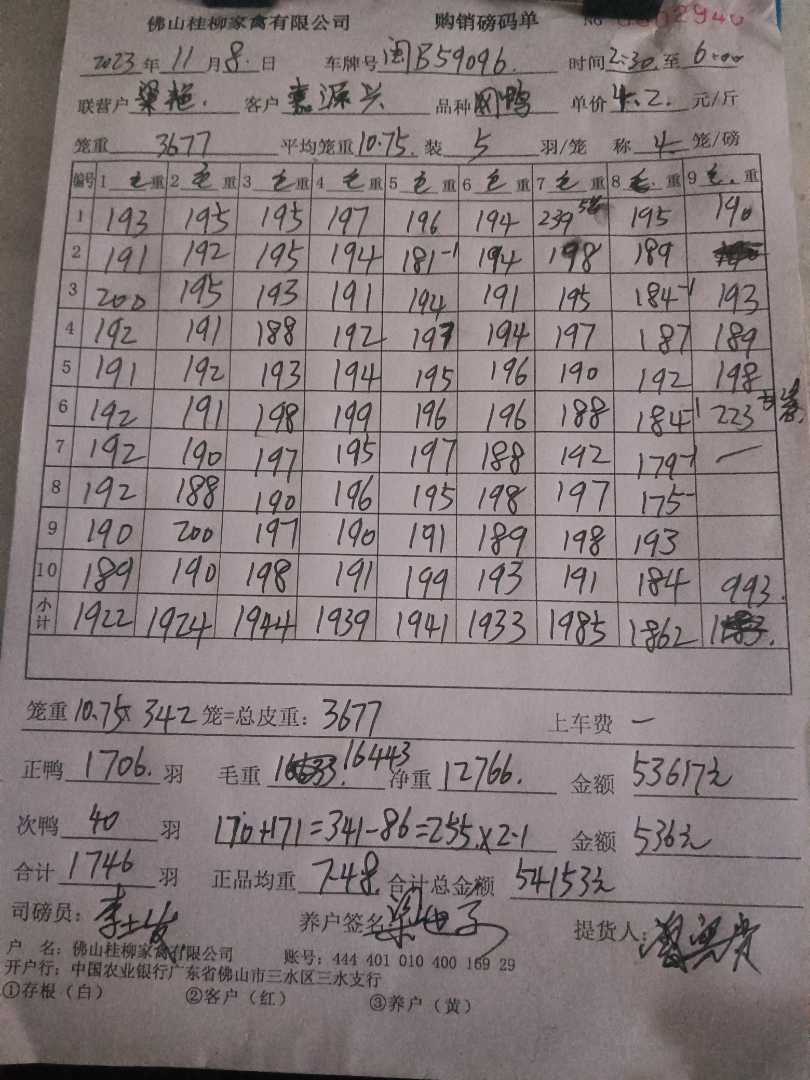 佛山桂柳家禽有限公司 购销磅码单 No 0002940
2023年11月8日 车牌号 闽B59096. 时间2:30.至6:00
联营户 梁艳. 客户 嘉源兴 品种 刚鸭 单价 4.2. 元/斤
笼重 3677 平均笼重10.75.装 5 羽/笼 称 4 笼/磅
编号 1 毛重 2 毛重 3 毛重 4 毛重 5 毛重 6 毛重 7 毛重 8 毛重 9 毛重
1 193 195 195 197 196 194 239 5笼 195 190
2 191 192 195 194 181-1 194 198 189
3 200 195 193 191 194 191 195 184-1 193
4 192 191 188 192 197 194 197 187 189
5 191 192 193 194 195 196 190 192 198
6 192 191 198 199 196 196 188 184-1 223
7 192 190 197 195 197 188 192 179-1 一
8 192 188 190 196 195 198 197 175-
9 190 200 197 190 191 189 198 193
10 189 190 198 191 199 193 191 184 993.
小计 1922 1924 1944 1939 1941 1933 1985 1862
笼重10.75x 342笼=总皮重：3677 上车费 一
正鸭 1706. 羽 毛重 16443 净重 12766. 金额 53617元
次鸭 40 羽 170+171=341-86=255.x2.1 金额 536元
合计 1746 羽 正品均重 7.48. 合计总金额 54153元
司磅员： 养户签名 提货人：
户 名：佛山桂柳家禽有限公司 账号：444 401 010 400 169 29
开户行：中国农业银行广东省佛山市三水区三水支行
①存根（白） ②客户（红） ③养户（黄）